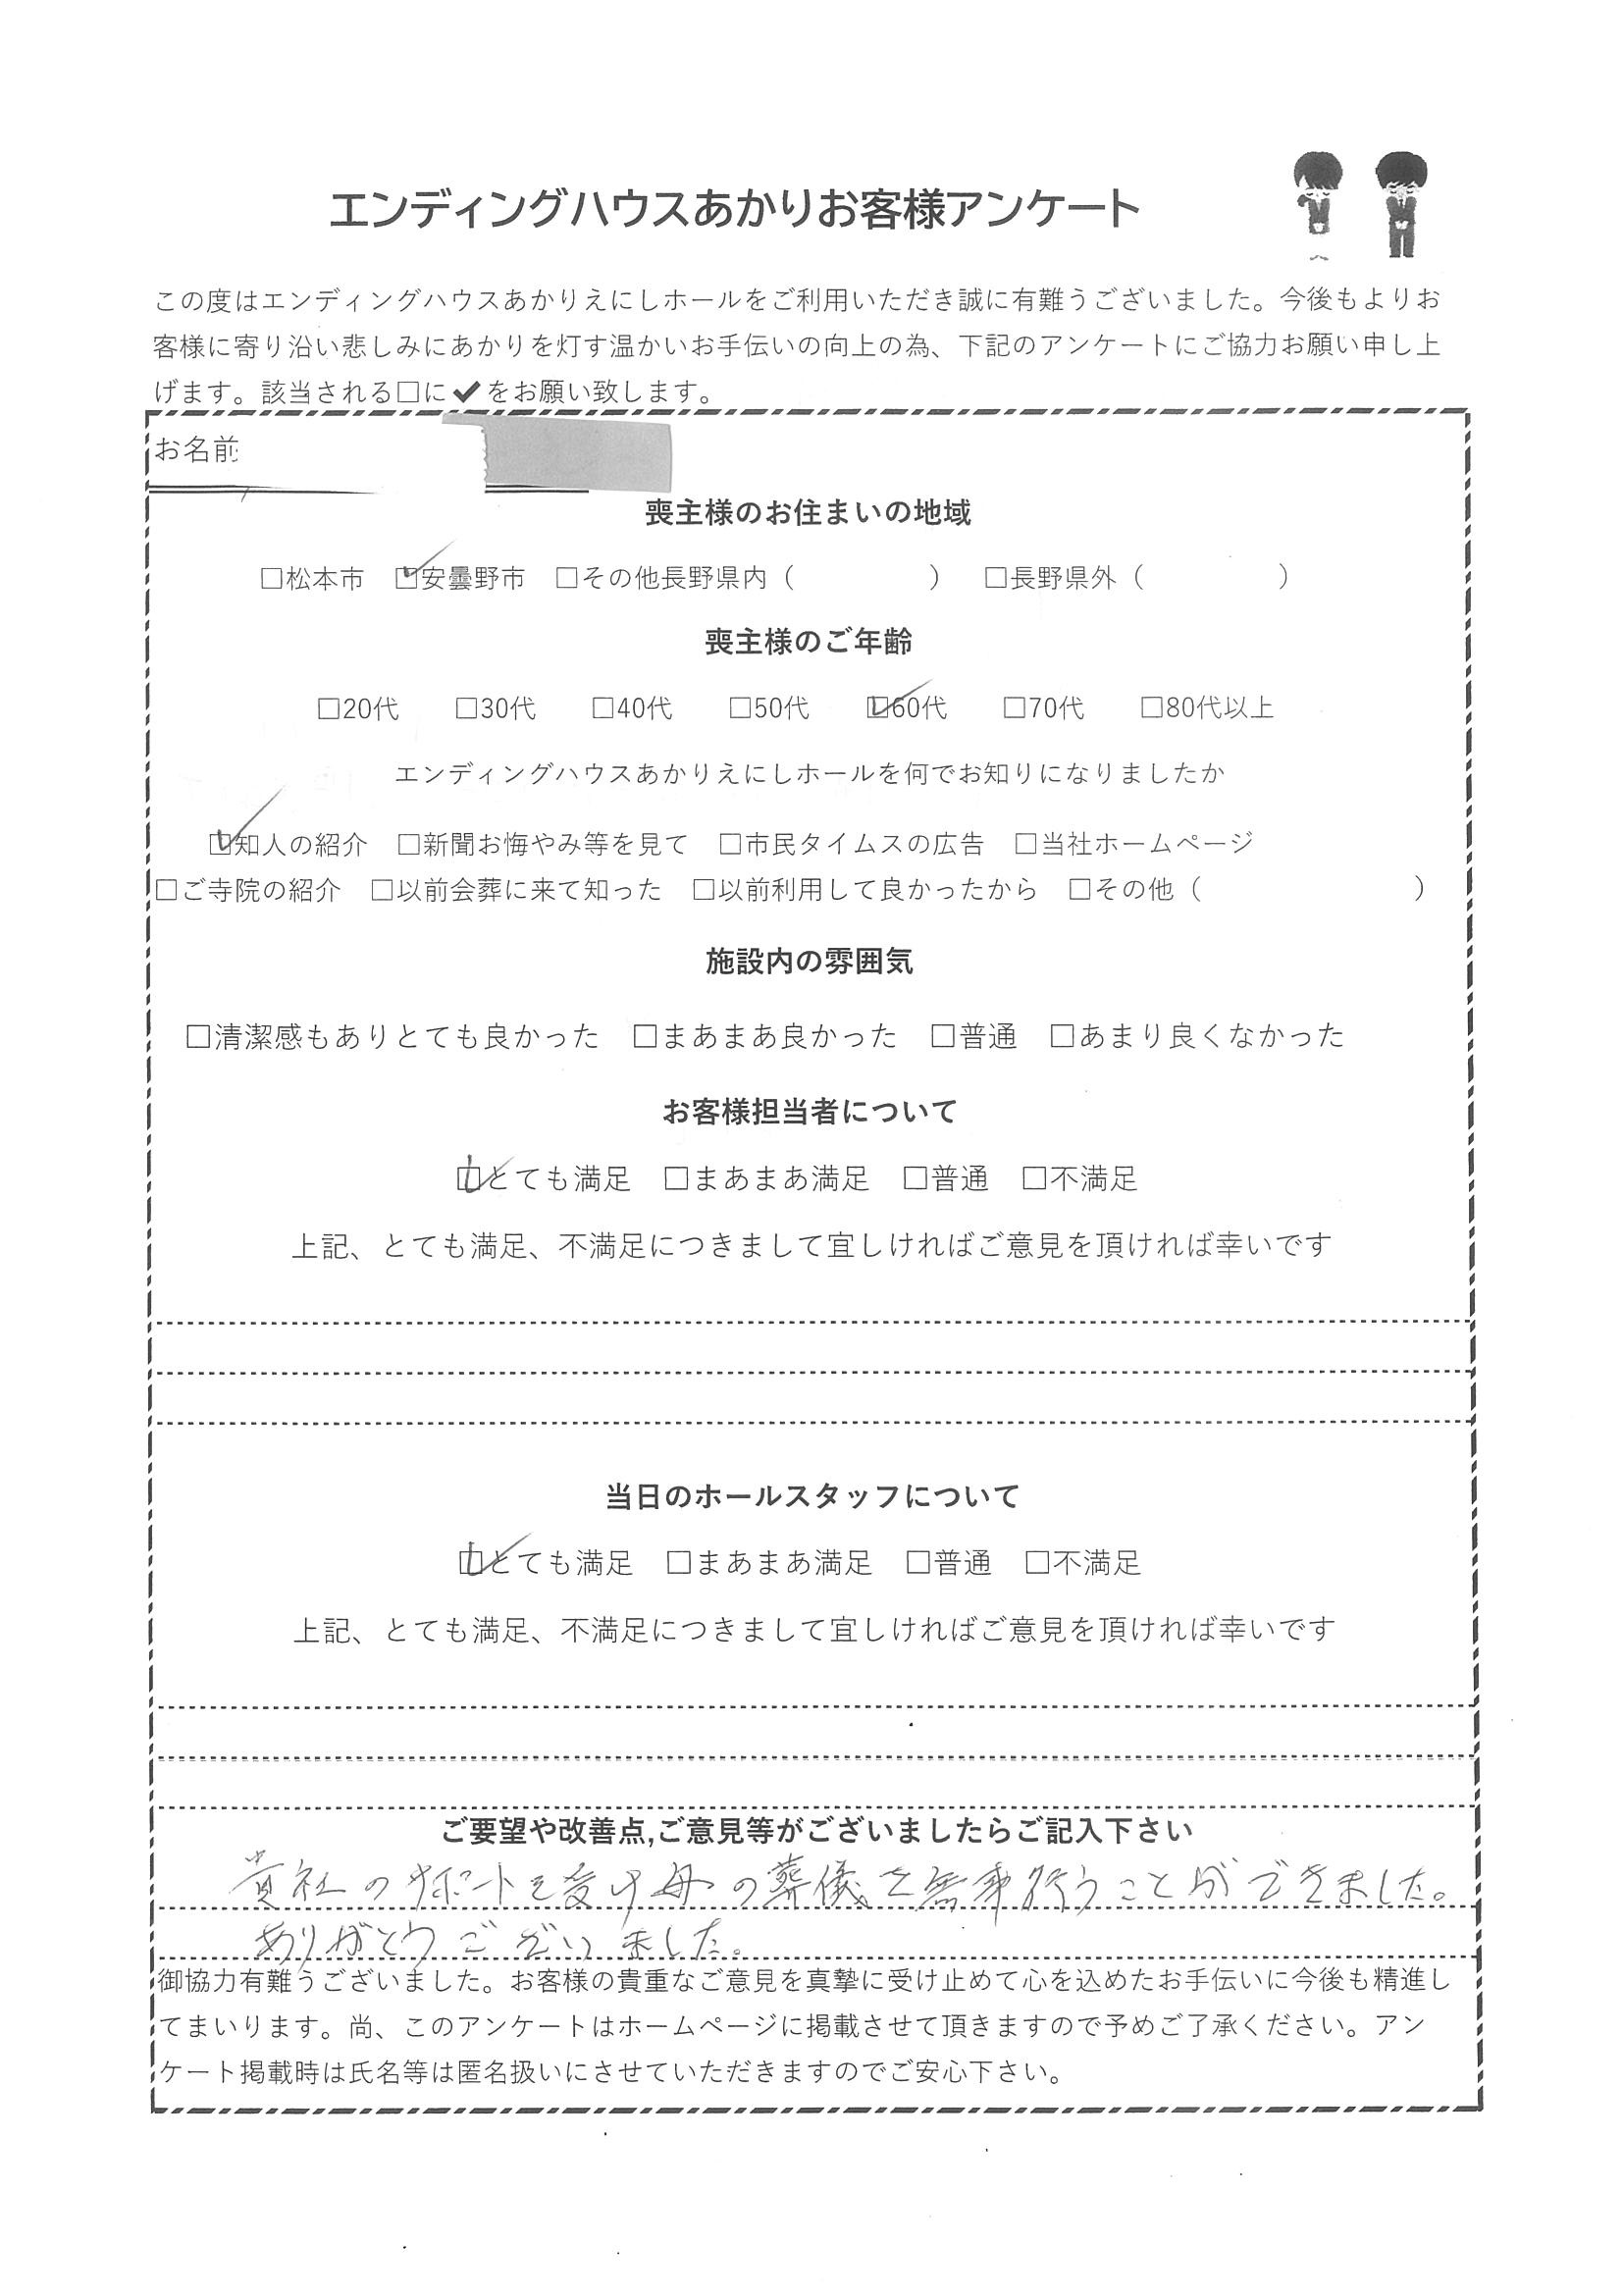 エンディングハウスあかりお客様アンケート
この度はエンディングハウスあかりえにしホールをご利用いただき誠に有難うございました。今後もよりお
客様に寄り沿い悲しみにあかりを灯す温かいお手伝いの向上の為、下記のアンケートにご協力お願い申し上
げます。該当される□に✔をお願い致します。
お名前
喪主様のお住まいの地域
□松本市 ☑安曇野市 □その他長野県内（ ） □長野県外（ ）
喪主様のご年齢
□20代 □30代 □40代 □50代 ☑60代 □70代 □80代以上
エンディングハウスあかりえにしホールを何でお知りになりましたか
☑知人の紹介 □新聞お悔やみ等を見て □市民タイムスの広告 □当社ホームページ
□ご寺院の紹介 □以前会葬に来て知った □以前利用して良かったから □その他（ ）
施設内の雰囲気
□清潔感もありとても良かった □まあまあ良かった □普通 □あまり良くなかった
お客様担当者について
☑とても満足 □まあまあ満足 □普通 □不満足
上記、とても満足、不満足につきまして宜しければご意見を頂ければ幸いです
当日のホールスタッフについて
☑とても満足 □まあまあ満足 □普通 □不満足
上記、とても満足、不満足につきまして宜しければご意見を頂ければ幸いです
ご要望や改善点,ご意見等がございましたらご記入下さい
貴社のサポートを受け母の葬儀を無事行うことができました。
ありがとうございました。
御協力有難うございました。お客様の貴重なご意見を真摯に受け止めて心を込めたお手伝いに今後も精進し
てまいります。尚、このアンケートはホームページに掲載させて頂きますので予めご了承ください。アン
ケート掲載時は氏名等は匿名扱いにさせていただきますのでご安心下さい。